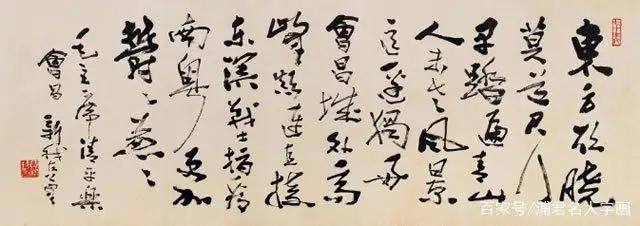 東方欲曉
莫道君行
早踏遍青山
人未老風景
這邊獨好
會昌城外高
峰顛連直接
東溟戰士指看
南粵更加
鬱〻蔥〻
毛主席清平樂
會昌
百家号/蒲君名人字画